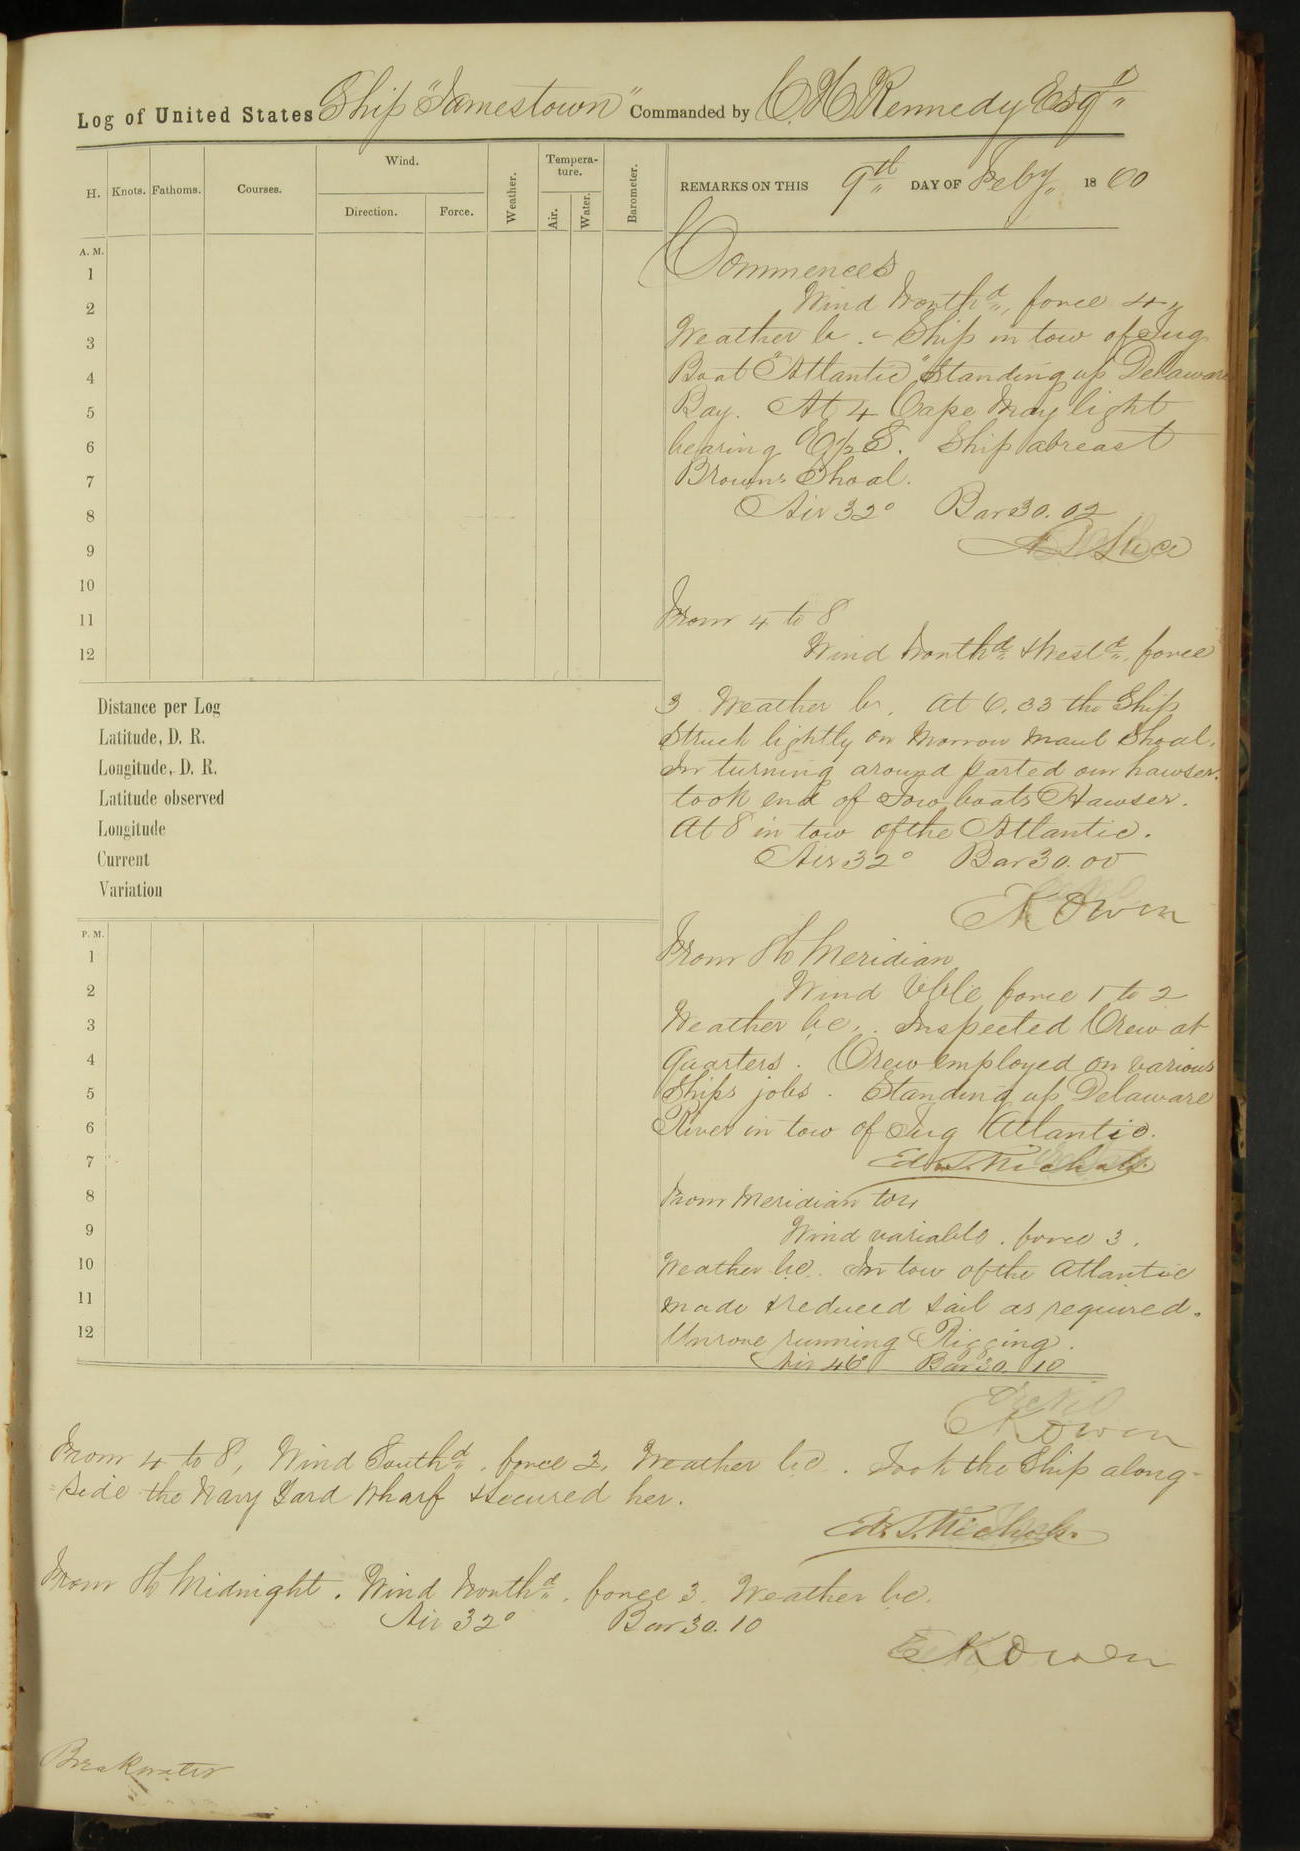 Log of United States Ship "Jamestown" Commanded by C. H. Kennedy Esqr
H. Knots. Fathoms. Courses. Wind. Direction. Force. Weather. Tempera-ture. Air. Water. Barometer.
REMARKS ON THIS 9th DAY OF Feby 1860
A. M.
1
2
3
4
5
6
7
8
9
10
11
12
Distance per Log
Latitude, D. R.
Longitude, D. R.
Latitude observed
Longitude
Current
Variation
P. M.
1
2
3
4
5
6
7
8
9
10
11
12
Commences
Wind Northd, force 4
Weather bc. Ship in tow of Tug
Boat "Atlantic" Standing up Delaware
Bay. At 4 Cape May light
bearing Ship abreast
Browns Shoal.
Air 32° Bar 30.02
Luce
From 4 to 8
Wind Northd & Westd, force
3 Weather bc. At 6.33 the Ship
Struck lightly on Shoal.
In turning around parted our hawser.
took end of Tow boats Hawser.
At 8 in tow of the Atlantic.
Air 32° Bar 30.00
E K Owen
From 8 to Meridian
Wind Vble force 1 to 2
Weather bc. Inspected Crew at
Quarters. Crew employed on various
Ships jobs. Standing up Delaware
River in tow of Tug Atlantic.
Edw. T. Nichols.
From Meridian to 4
Wind variable. force 3.
Weather bc. In tow of the Atlantic
made & reduced sail as required.
Unrove running Rigging.
Air 46° Bar 30.10
E K Owen
From 4 to 8, Wind Southd. force 2, Weather bc. Took the Ship along-
side the Navy Yard Wharf & secured her.
Edw. T. Nichols.
From 8 to Midnight. Wind Northd. force 3. Weather bc.
Air 32° Bar 30.10
E K Owen
Breakwater